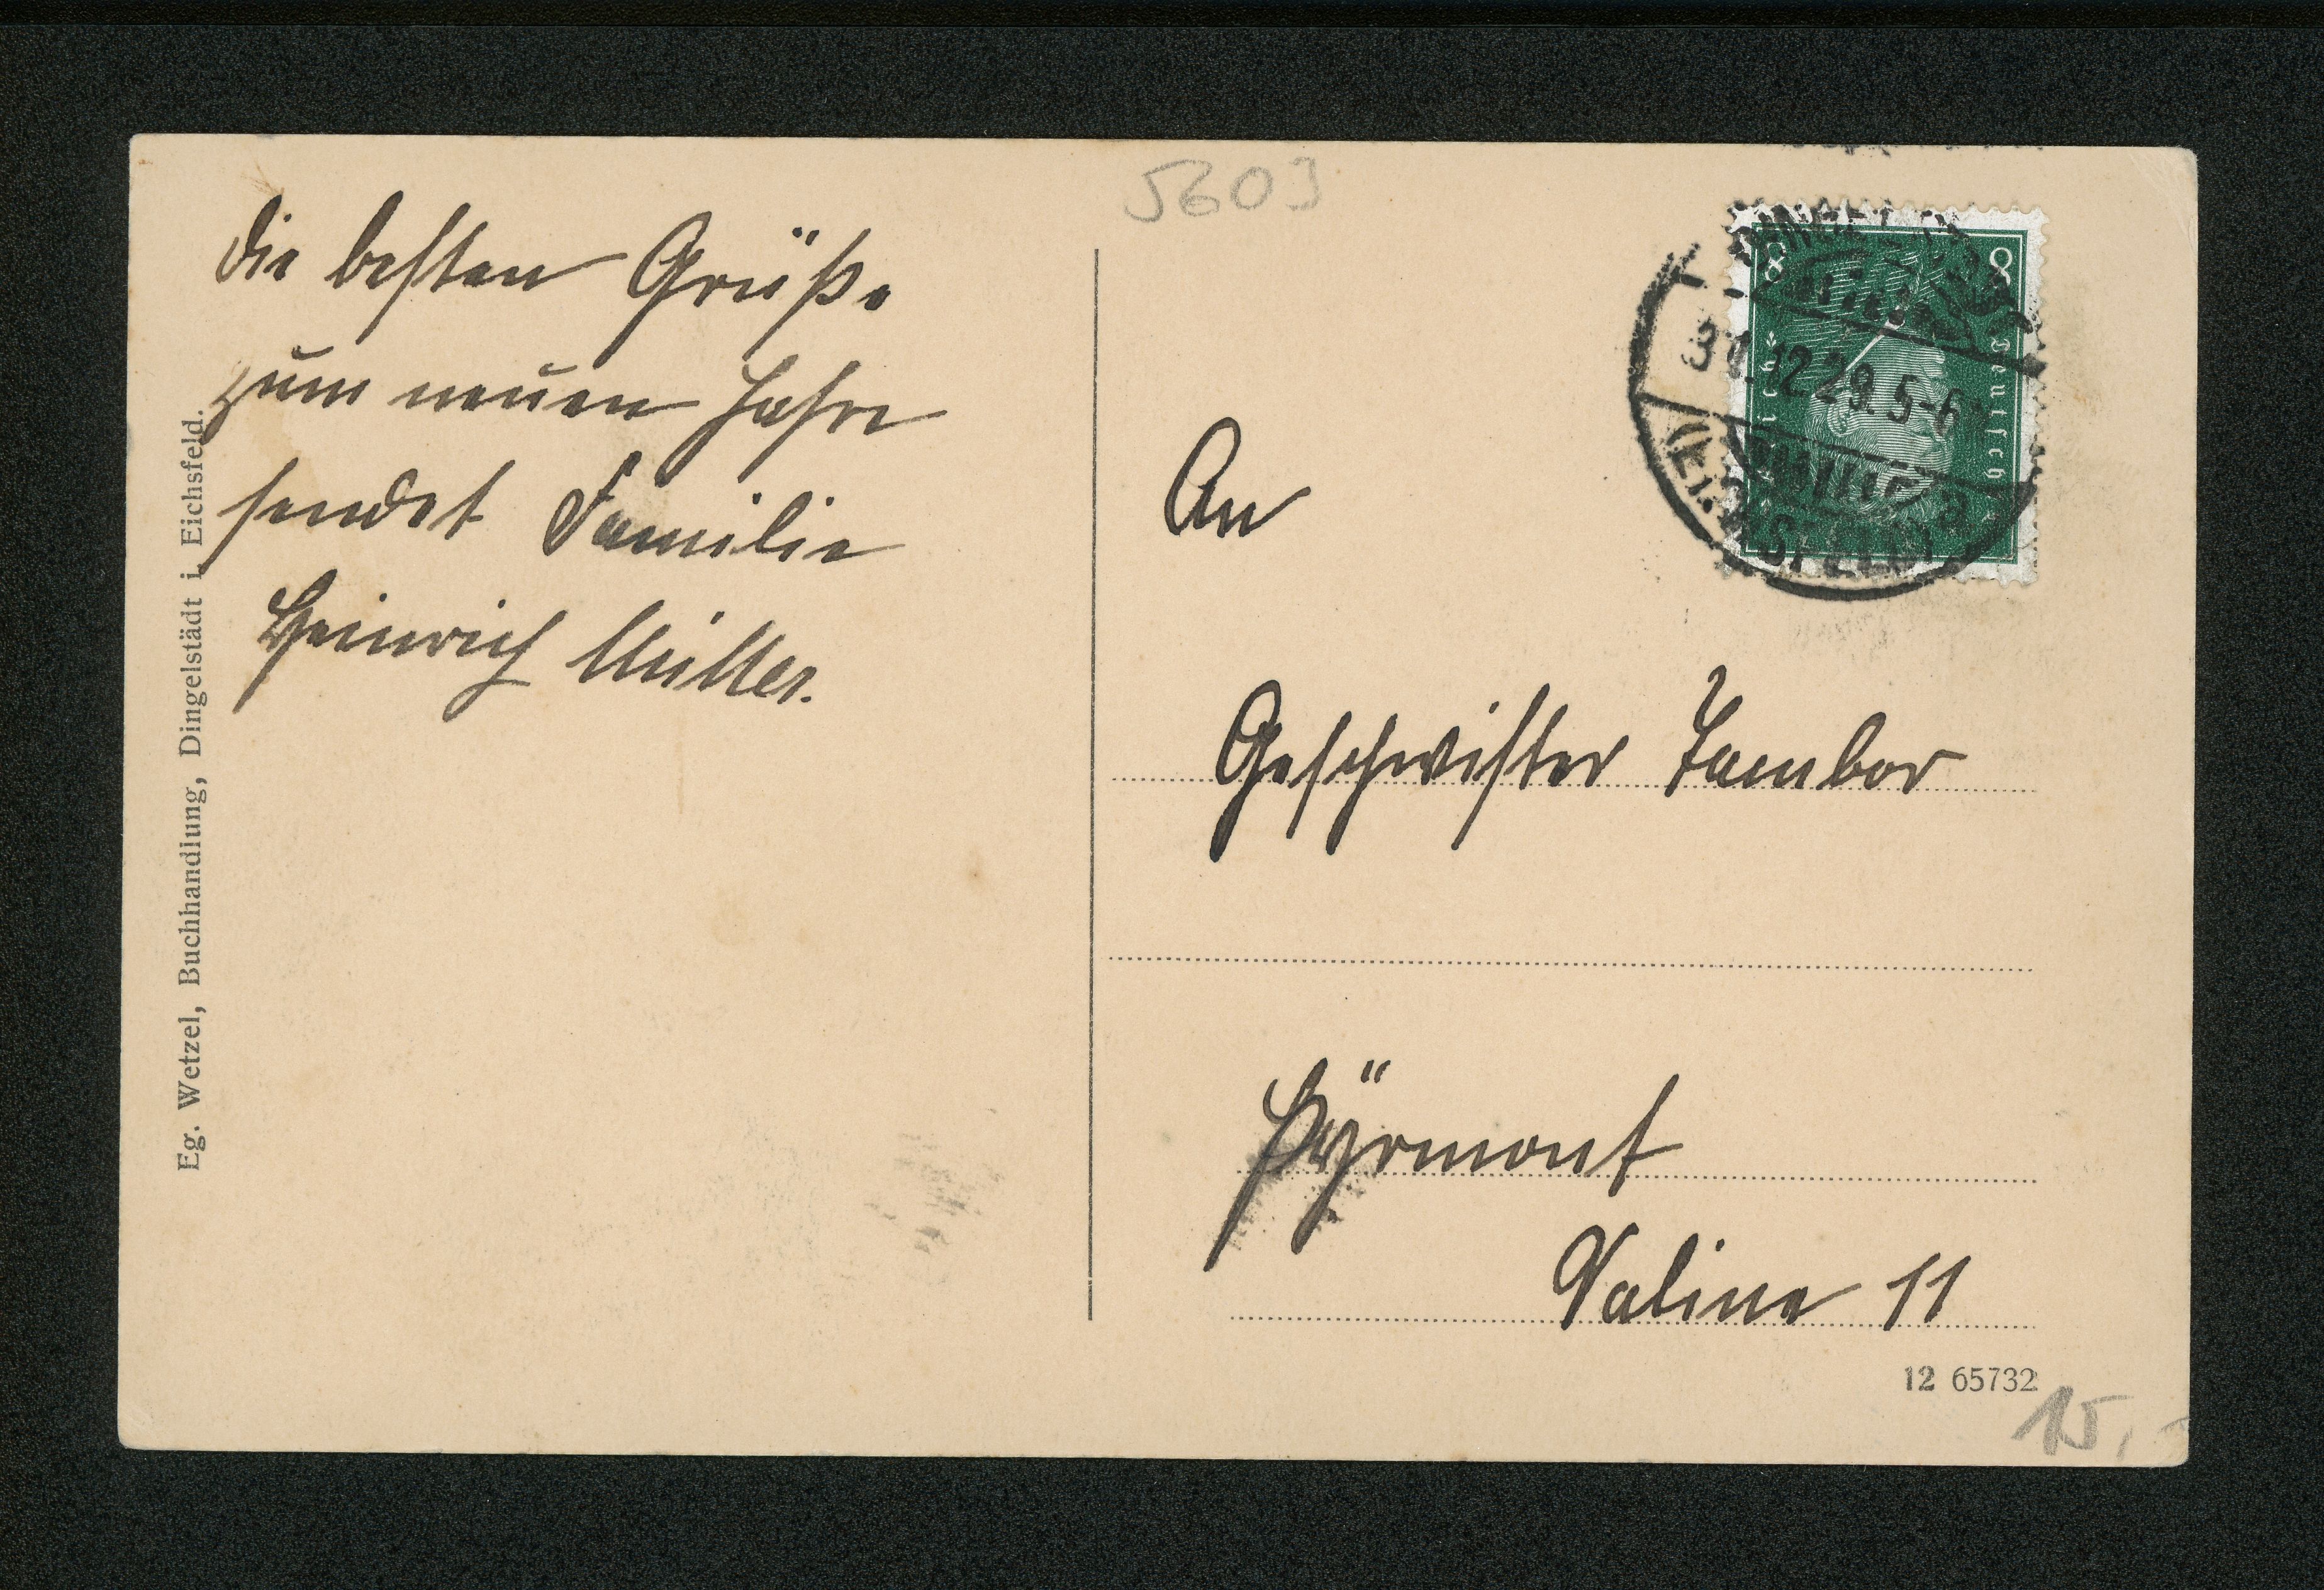 5603
die besten Grüße
zum neuen Jahre
sendet Familie
Heinrich Müller.
Eg. Wetzel, Buchhandlung, Dingelstädt i. Eichsfeld.
8 8
Deutsches Reich
31.12.29. 5-6
a
An
Geschwister Tambor
Pÿrmont
Saline 11
12 65732
15,-